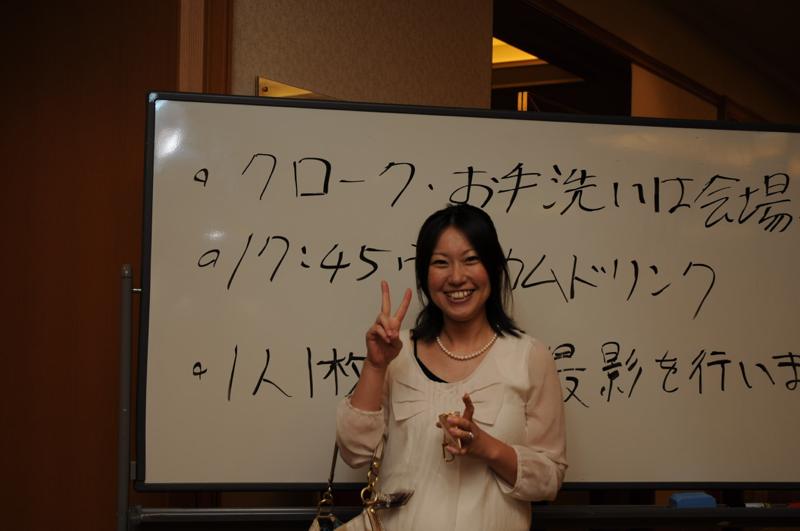 クローク・お手洗いは会場
17:45 カムドリンク
1人1枚 撮影を行いま